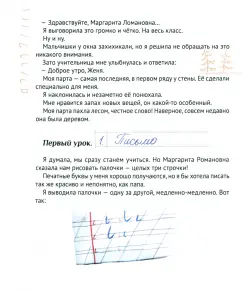 – Здравствуйте, Маргарита Ломановна...
Я выговорила это громко и чётко. На весь класс.
Ну и ну.
Мальчишки у окна захихикали, но я решила не обращать на это
никакого внимания.
Зато учительница мне улыбнулась и ответила:
– Доброе утро, Женя.
Моя парта — самая последняя, в первом ряду у стены. Её сделали
специально для меня.
Я наклонилась и незаметно её понюхала.
Мне нравится запах новых вещей, он какой-то особенный.
Моя парта пахла лесом, честное слово! Наверное, совсем недавно
она была деревом.
Первый урок. 1 Письмо
Я думала, мы сразу станем учиться. Но Маргарита Романовна
сказала нам рисовать палочки — целых три строчки!
Печатные буквы у меня хорошо получаются, но я бы хотела писать
так же красиво и непонятно, как папа.
Я выводила палочки — одну за другой, медленно-медленно. Вот
так: